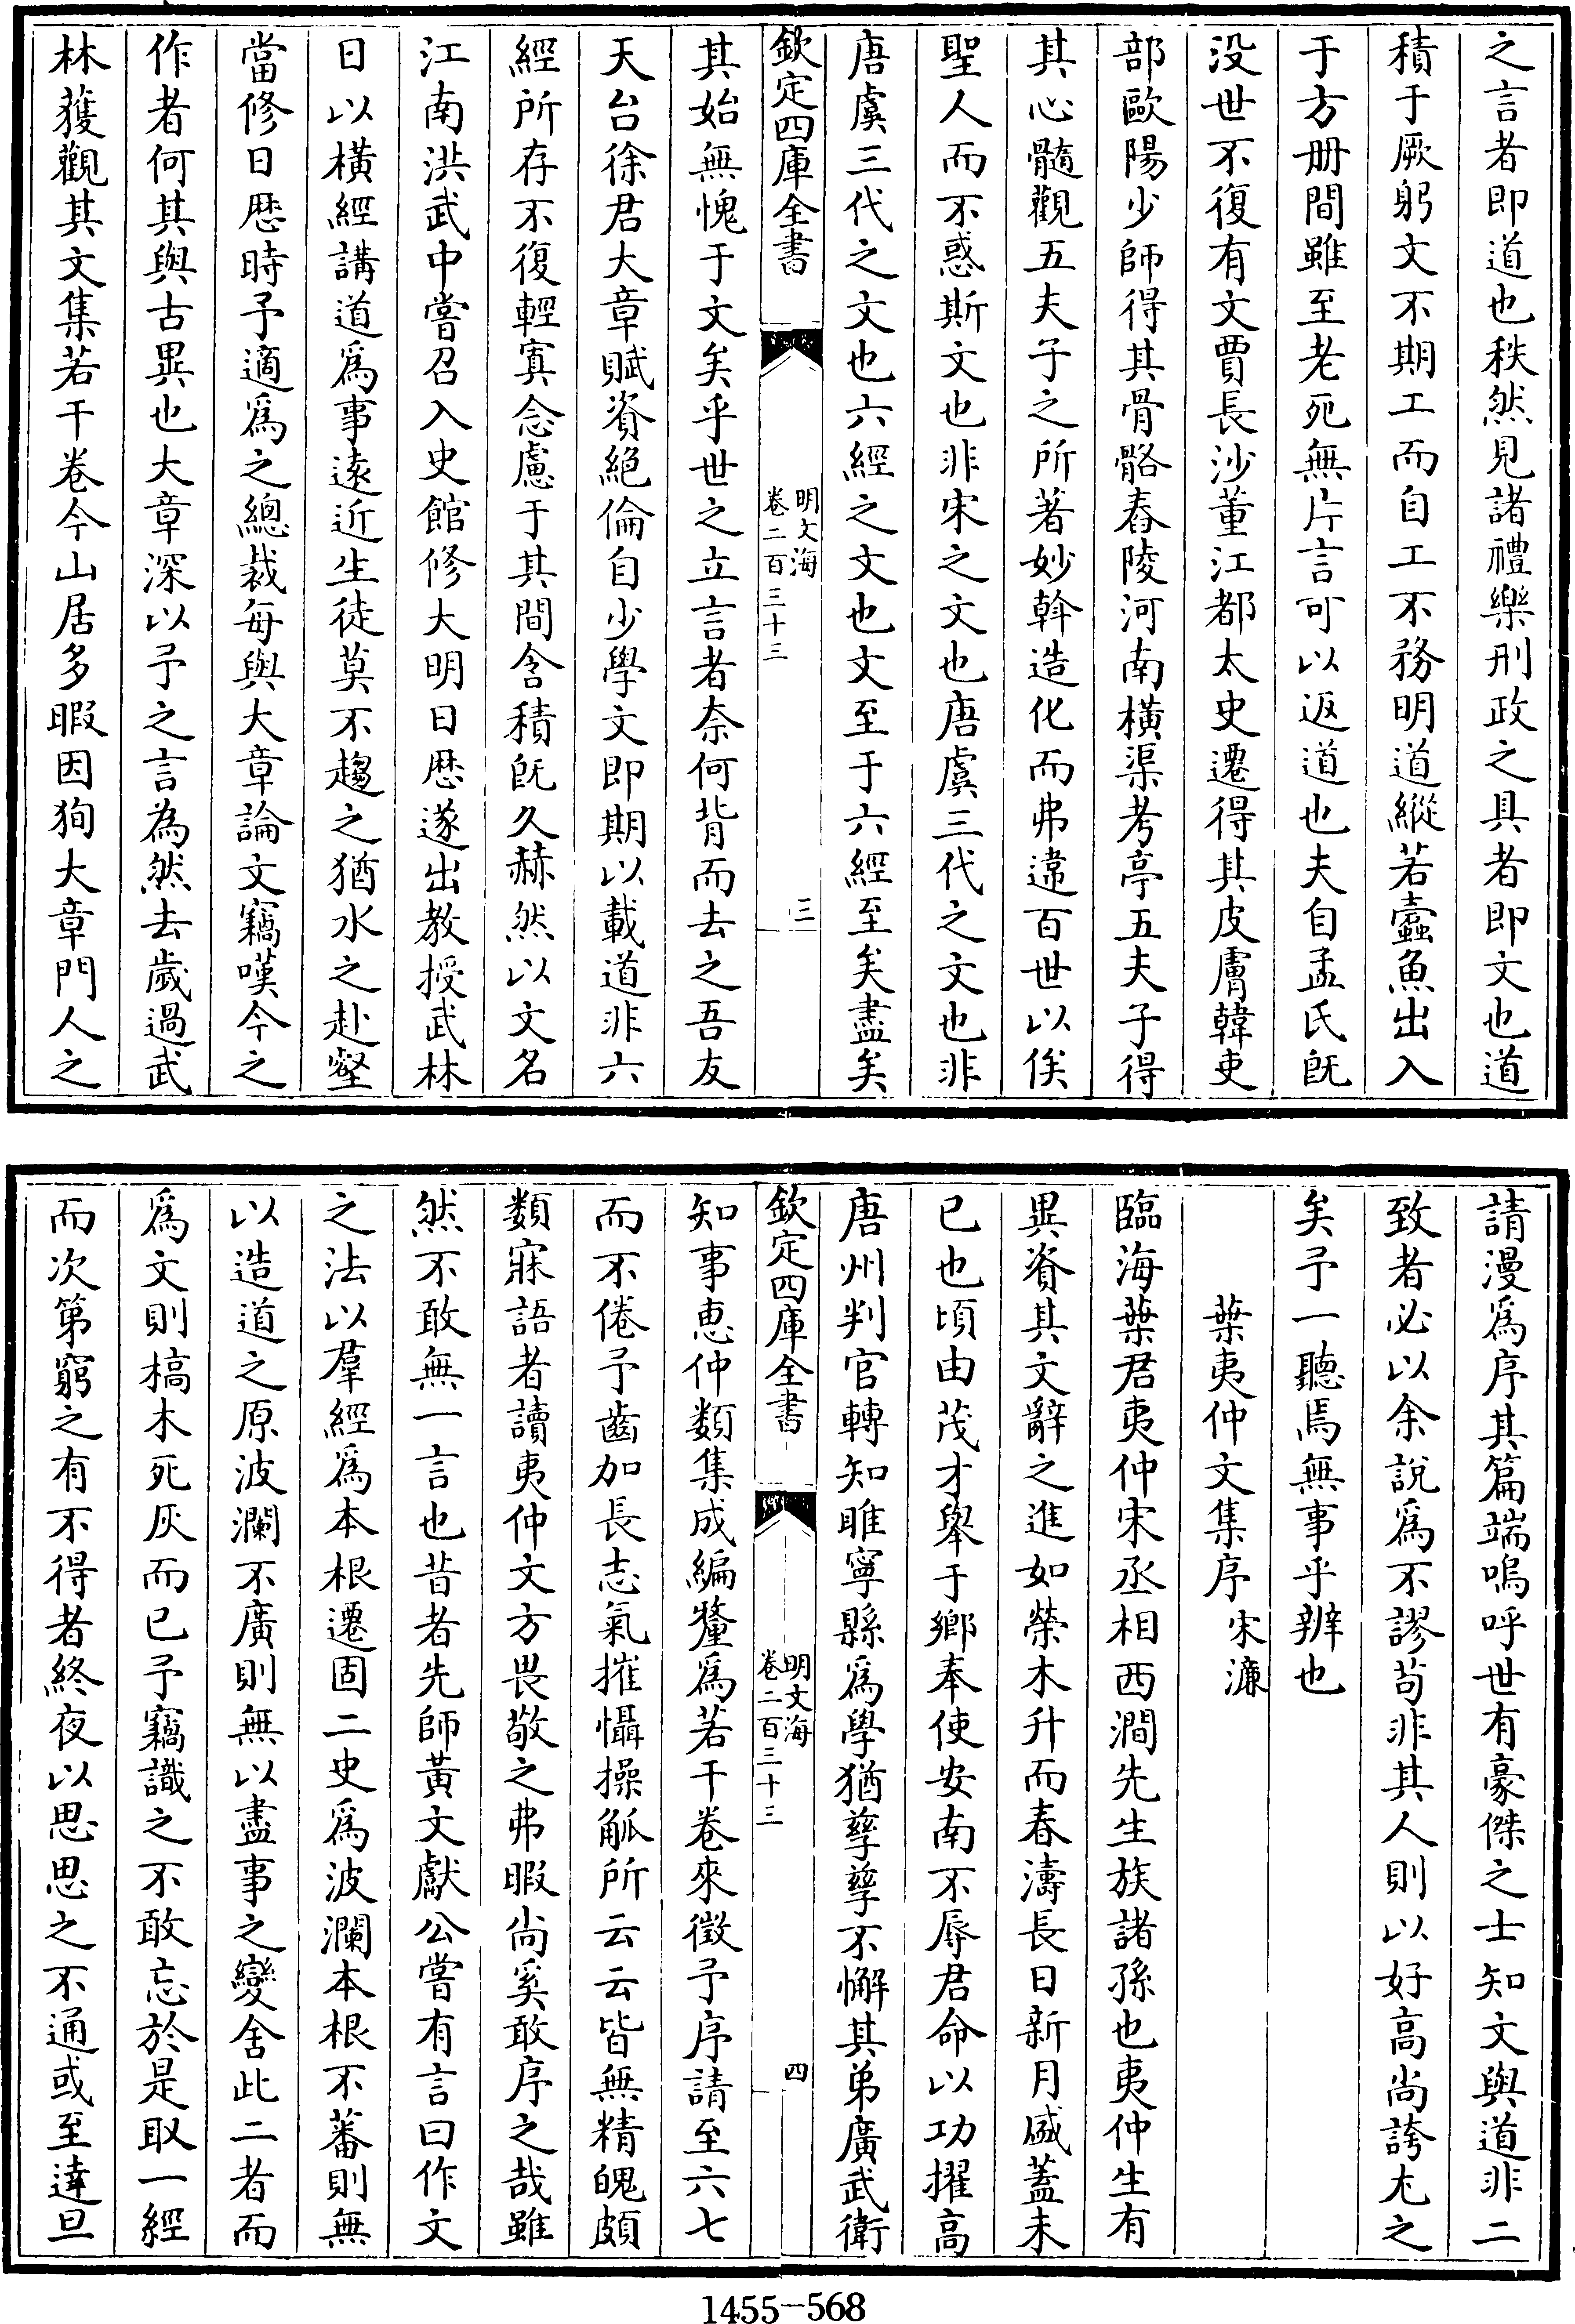 之言者即道也秩然見諸禮樂刑政之具者即文也道
積于厥躬文不期工而自工不務明道縱若蠹魚出入
于方册間雖至老死無片言可以返道也夫自孟氏既
没世不復有文賈長沙董江都太史遷得其皮膚韓吏
部歐陽少師得其骨骼舂陵河南橫渠考亭五夫子得
其心髓觀五夫子之所著妙斡造化而弗違百世以俟
聖人而不惑斯文也非宋之文也唐虞三代之文也非
唐虞三代之文也六經之文也文至于六經至矣盡矣
欽定四庫全書
明文海
卷二百三十三
三
其始無愧于文矣乎世之立言者奈何背而去之吾友
天台徐君大章賦資絕倫自少學文即期以載道非六
經所存不復輕寘念慮于其間含積既久赫然以文名
江南洪武中嘗召入史館修大明日歷遂出教授武林
日以橫經講道爲事遠近生徒莫不趨之猶水之赴壑
當修日歷時予適爲之總裁每與大章論文竊嘆今之
作者何其與古異也大章深以予之言為然去歲過武
林獲觀其文集若干卷今山居多暇因狥大章門人之
請漫爲序其篇端嗚呼世有豪傑之士知文與道非二
致者必以余說爲不謬苟非其人則以好高尚誇尤之
矣予一聽焉無事乎辨也
葉夷仲文集序 宋濂
臨海葉君夷仲宋丞相西澗先生族諸孫也夷仲生有
異資其文辭之進如榮木升而春濤長日新月盛蓋未
已也頃由茂才舉于鄉奉使安南不辱君命以功擢高
唐州判官轉知睢寧縣爲學猶孳孳不懈其弟廣武衛
欽定四庫全書
明文海
卷二百三十三
四
知事惠仲類集成編釐爲若干卷來徵予序請至六七
而不倦予齒加長志氣摧懾操觚所云云皆無精魄頗
類寐語者讀夷仲文方畏敬之弗暇尚奚敢序之哉雖
然不敢無一言也昔者先師黃文獻公嘗有言曰作文
之法以羣經爲本根遷固二史爲波瀾本根不蕃則無
以造道之原波瀾不廣則無以盡事之變舍此二者而
爲文則槁木死灰而已予竊識之不敢忘於是取一經
而次第窮之有不得者終夜以思思之不通或至達旦
1455-568